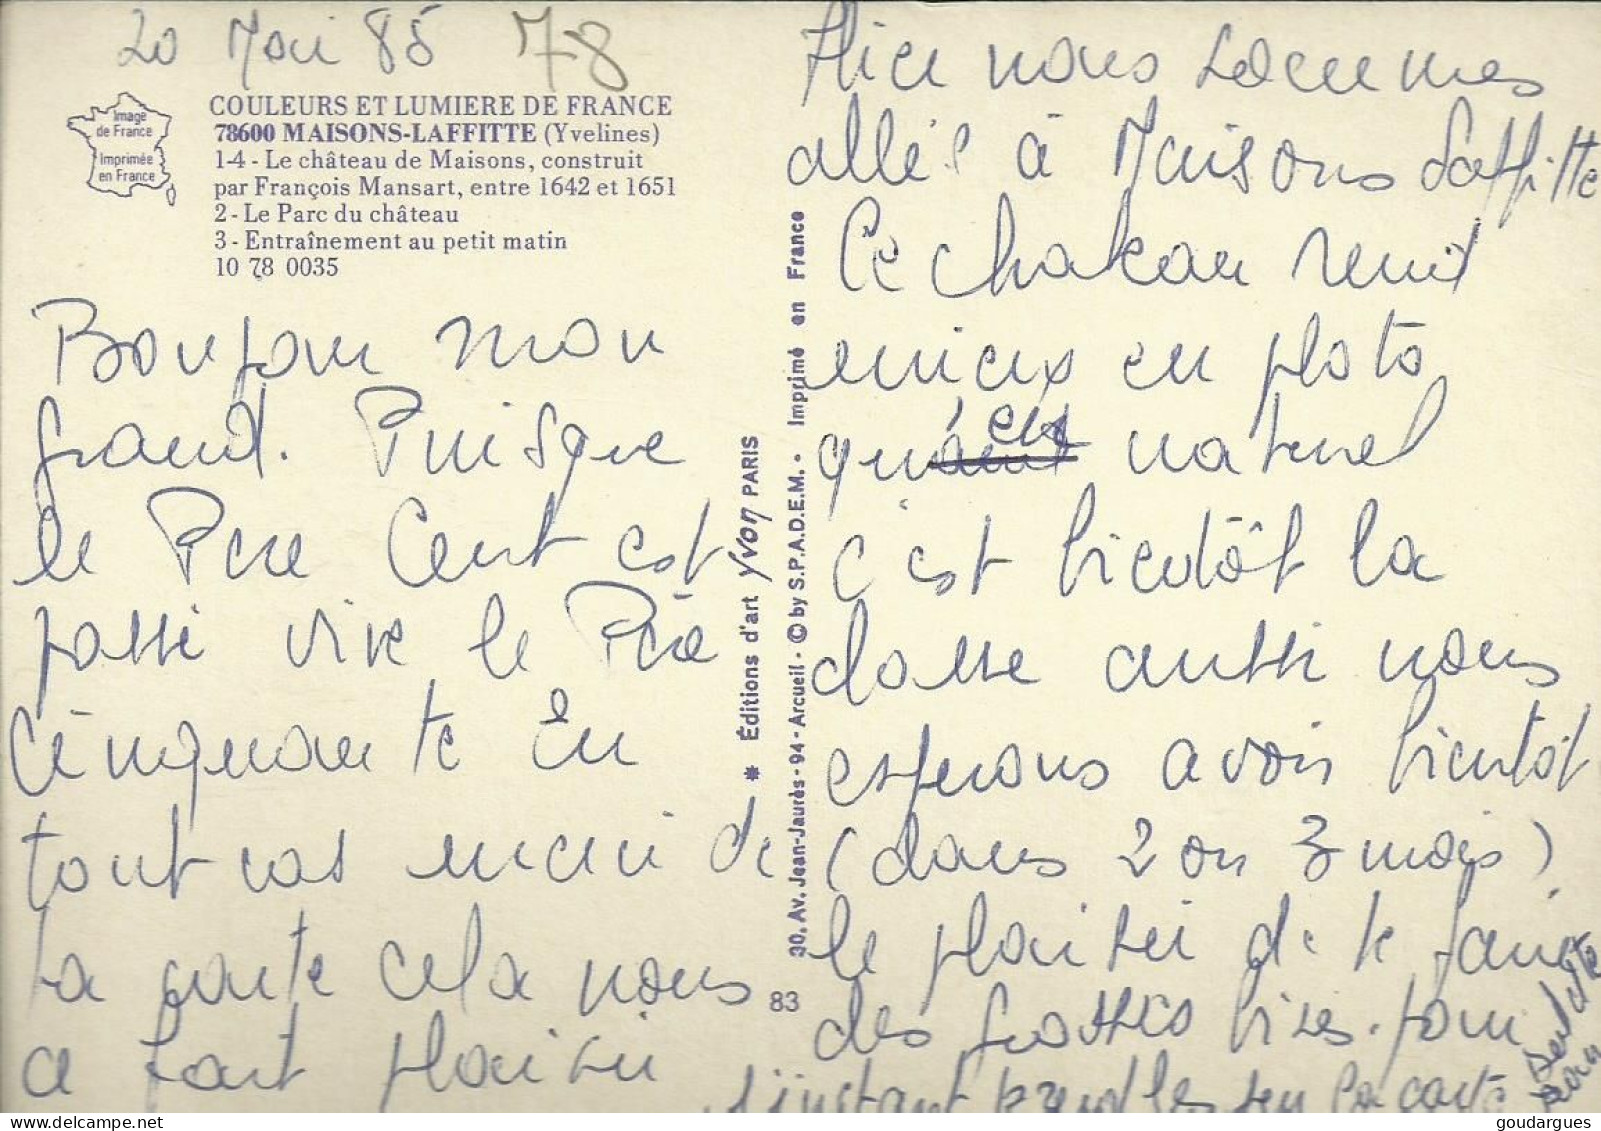 20 Mai 85 78
Image
de France
Imprimée
en France
COULEURS ET LUMIERE DE FRANCE
78600 MAISONS-LAFFITTE (Yvelines)
1-4 - Le château de Maisons, construit
par François Mansart, entre 1642 et 1651
2 - Le Parc du château
3 - Entraînement au petit matin
10 78 0035
Bonjour mon
grand. Puisque
le Père Cent est
passé vive le Père
Cinquante En
tout cas merci de
ta carte cela nous
a fait plaisir
Éditions d'art yvon PARIS
30, Av. Jean-Jaurès - 94 - Arcueil - © by S.P.A.D.E.M. - Imprimé en France
83
Hier nous sommes
allés à Maisons Laffitte
Ce chateau rend
mieux en photo
qu'en naturel
c'est bientôt la
classe aussi nous
esperons avoir bientôt
(dans 2 ou 3 mois)
le plaisir de te faire
des grosses bises. pour
l'instant prend les sur la carte